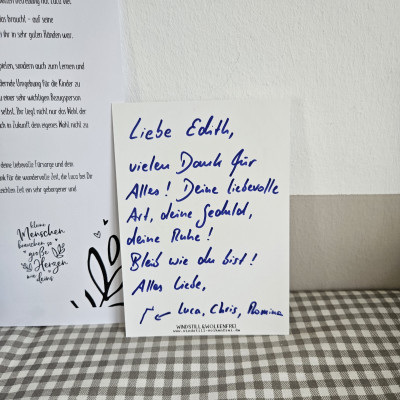 ios braucht - auf seine
ihr in sehr guten Händen war.
pielen, sondern auch zum Lernen und
dernde Umgebung für die Kinder zu
u einer sehr wichtigen Bezugsperson
selbst. Ihr liegt nicht nur das Wohl der
ch in Zukunft dein eigenes Wohl nicht zu
deine liebevolle Fürsorge und dein
ank für die wundervolle Zeit, die Luca bei Dir
eckten Zeit ein sehr geborgener und
kleine
Menschen
brauchen so
große
Herzen
wie
deins
Liebe Edith,
vielen Dank für
Alles! Deine liebevolle
Art, deine Geduld,
deine Ruhe!
Bleib wie du bist!
Alles Liebe,
Luca, Chris, Romina
WINDSTILL&WOLKENFREI
www.windstill-wolkenfrei.com